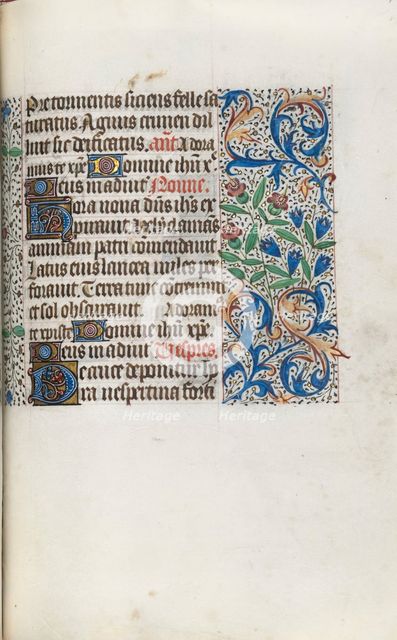 Pre tormentis siciens felle sa
turatus. Agnus crimen dil
luit sic deificatus. ant Adora
mus te xpe. Domine ihu x
Deus in adiut Nonne.
Hora nona dns ihs ex
piravit hely clamās
animam patri comendavit
Latus eius lancea miles per
foravit. Terra tunc cotremuit
et sol obscuravit. Adoram
te xpiste Domine ihu xpe.
Deus in adiut Vespres.
De cruce deponitur hō
ra vespertina forti
Heritage
Heritage